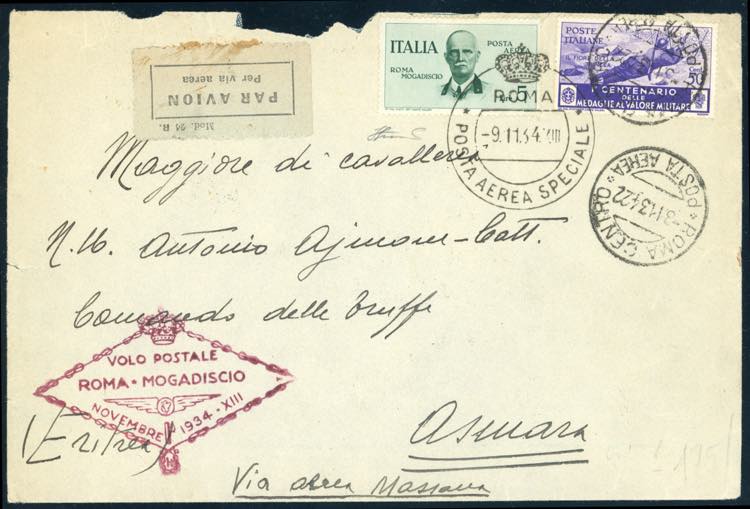 Mod. 24 B.
PAR AVION
Per via aerea
ITALIA
POSTA AEREA
ROMA MOGADISCIO
5
POSTE ITALIANE
50
CENTENARIO
DELLE
MEDAGLIE AL VALORE MILITARE
ROMA
-9.11.34.XIII
* POSTA AEREA SPECIALE *
* ROMA CENTRO *
-8.1134.22
POSTA AEREA
Maggiore di cavalleria
N.H. Antonio Ajmone-Catt.
Comando delle Truppe
VOLO POSTALE
ROMA • MOGADISCIO
NOVEMBRE 1934 - XIII
Asmara
(Eritrea)
Via aerea Massaua